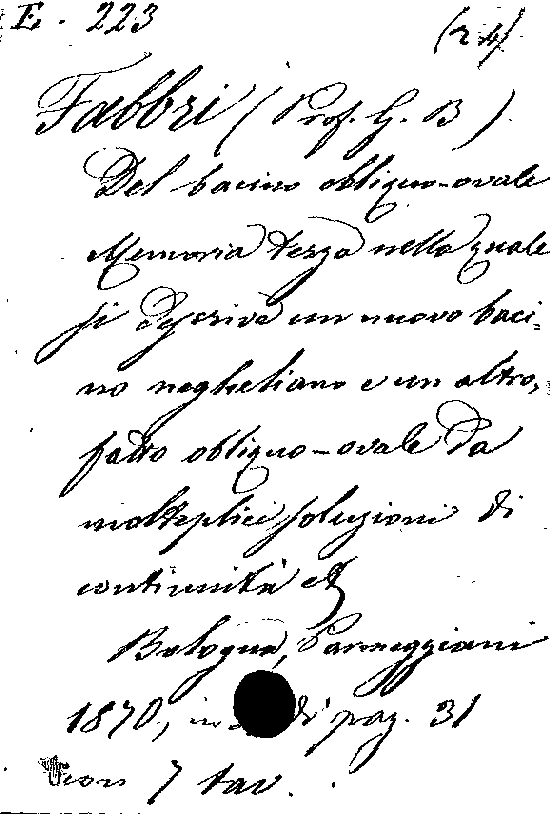 E. 223 (24)
Fabbri (Prof. G. B.)
Del bacino obliquo-ovale
Memoria terza nella quale
si descrive un nuovo baci=
no negheliano e un altro,
fatto obliquo-ovale da
molteplici soluzioni di
continuità etc
Bologna, Parmeggiani
1870, in di pag. 31
con 7 tav.